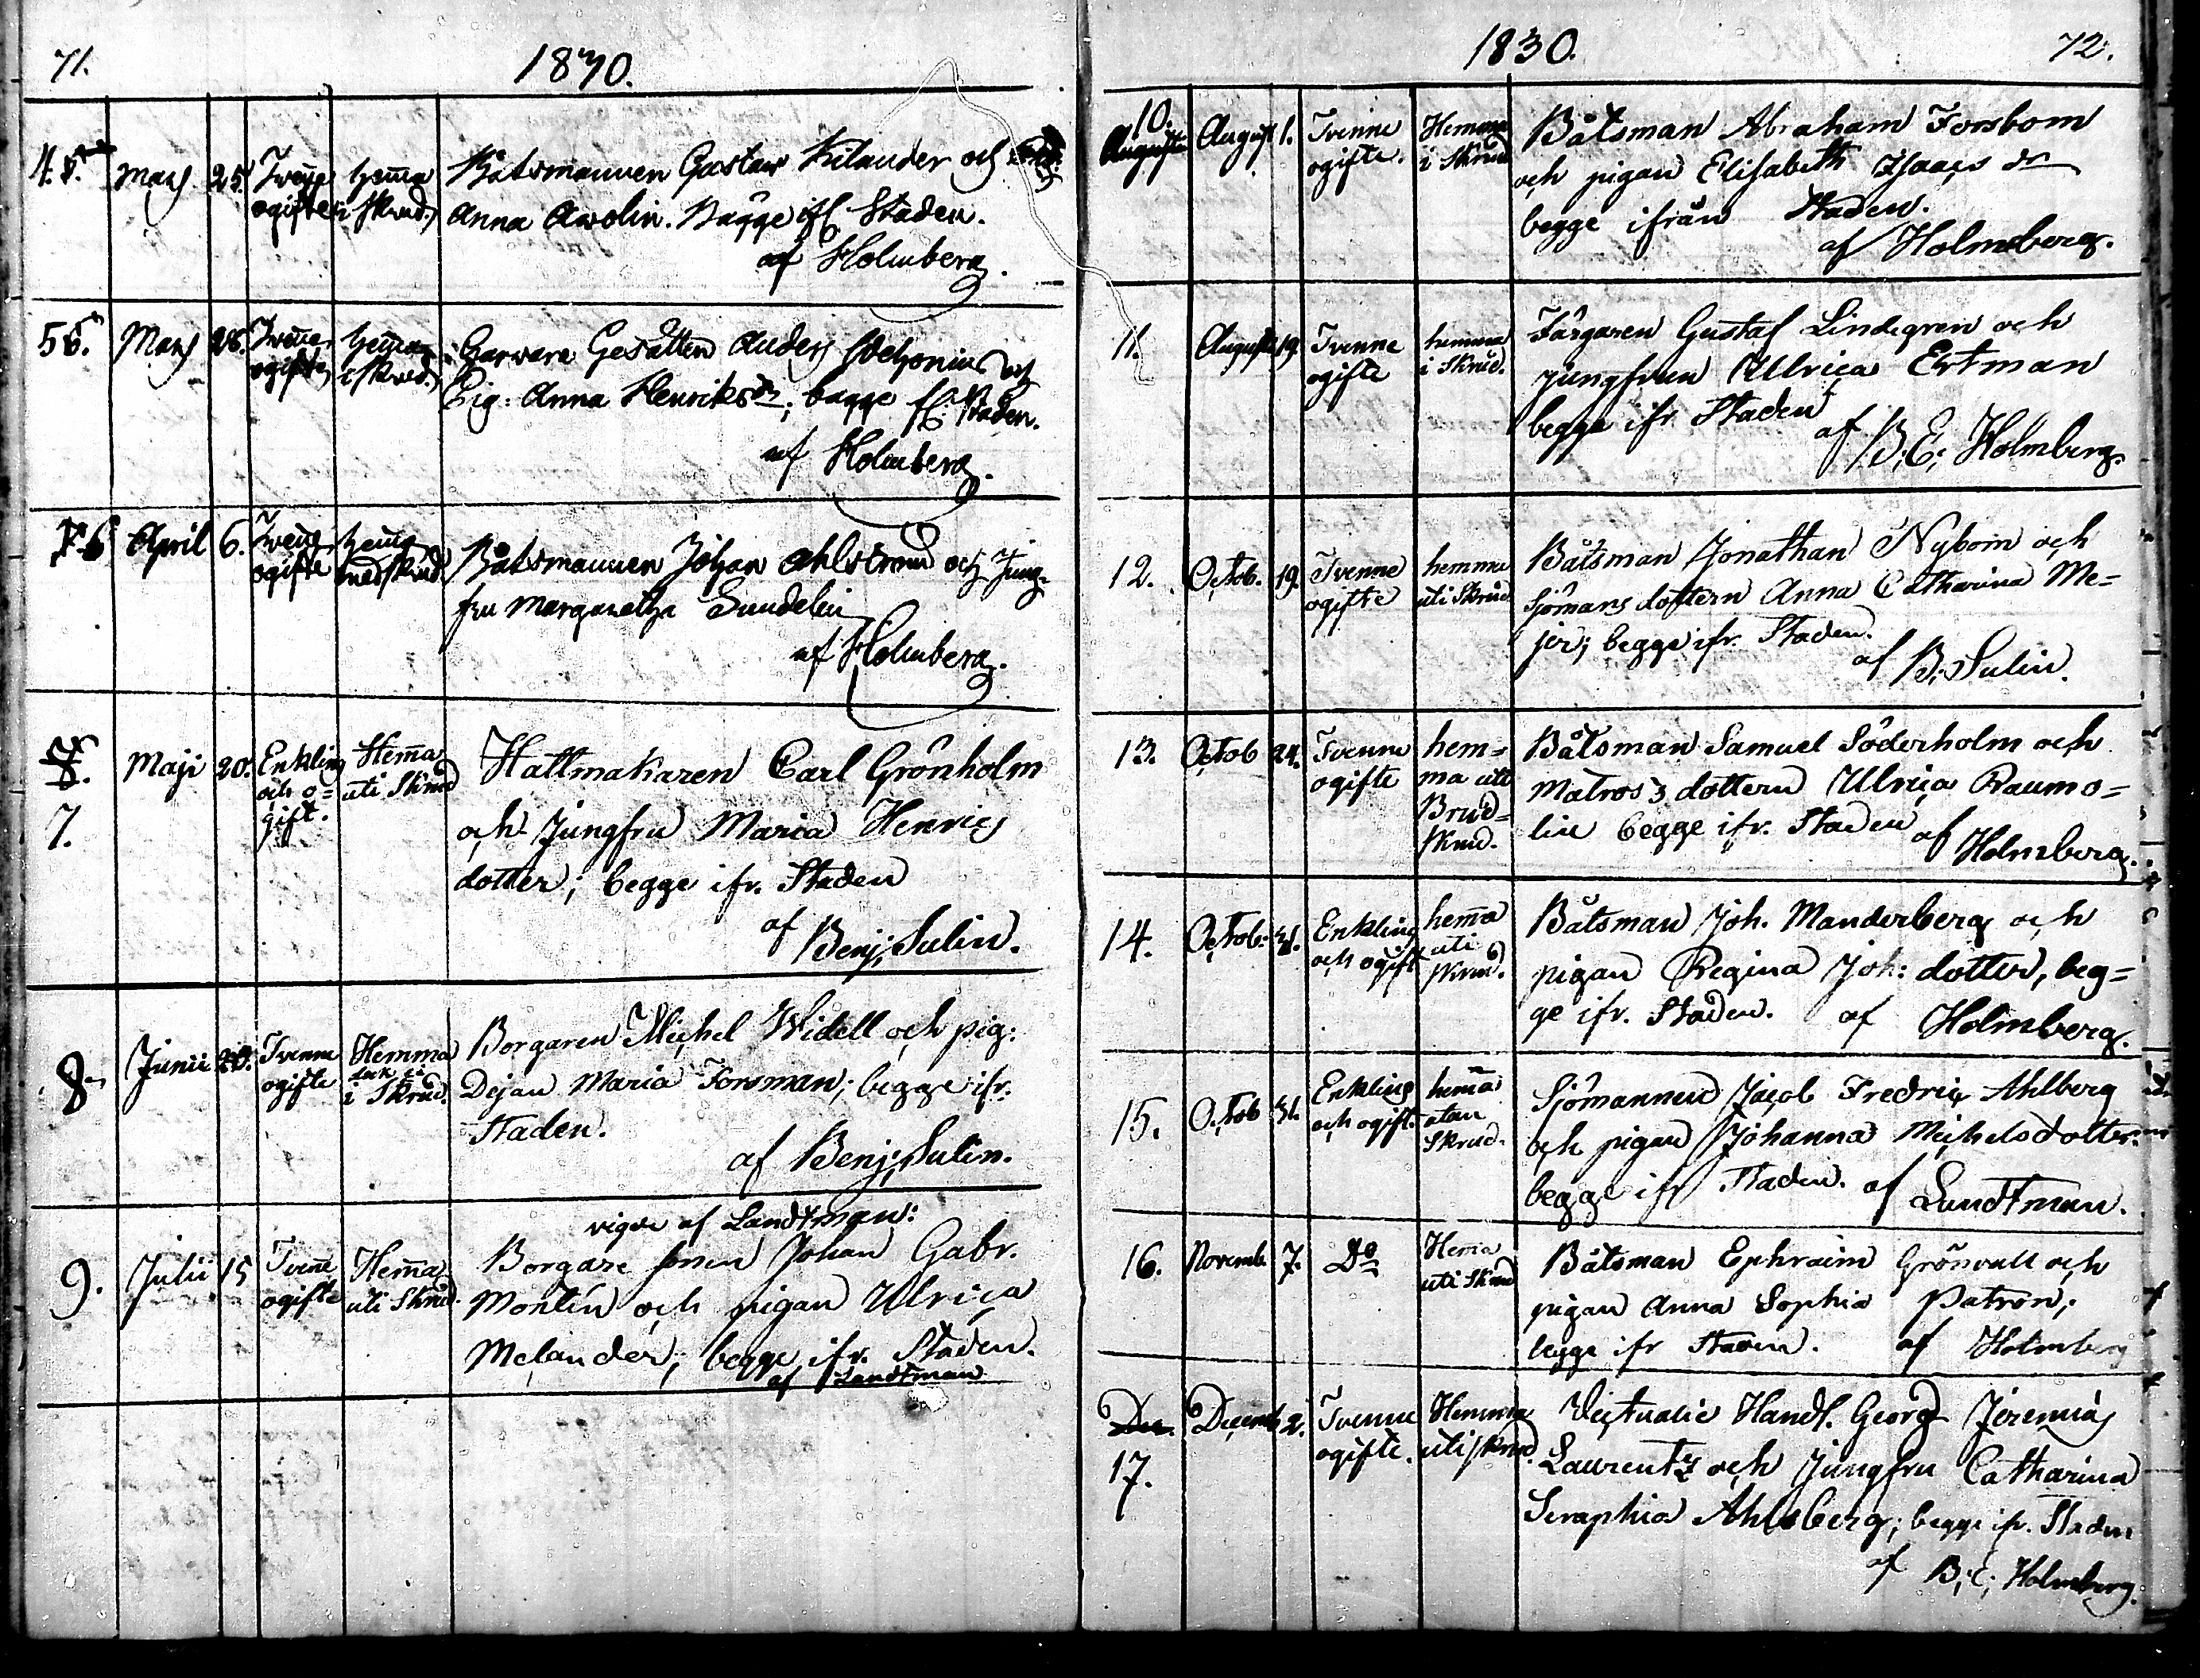 71.
1830.
4.
Mars 25. Twenne ogifte hemma i Skrud.
Båtsmannen Gustaw Kilander och
Anna Awolin. Bägge ifr Staden.
af Holmberg.
5
Mars 28. Twenne ogifte hemma i Skrud.
Garware Gesällen Anders och
Pig: Anna Henriksdr; bägge fr: Staden.
af Holmberg.
6
April 6. Twenne ogifte hemma med skrud.
Båtsmannen Johan Ahlstrand och Jung-
fru Margaretha Sundelin
af Holmberg.
8.
7.
Maji 20. Enkling och o=gift. Hema uti Skrud
Hattmakaren Carl Grönholm
och Jungfru Maria Henrics
dotter; begge ifr. Staden
af Benj; Sulin.
8
Junii 20. Tvenne ogifte Hemma i Skrud.
Borgaren Michel Widell och pig:
Dejan Maria Forsman; begge ifr.
Staden.
af Benj; Sulin.
9.
Julii 15 Tvene ogifte Hema uti Skrud.
vigde af Landtman:
Borgare sonen Johan Gabr.
Montin och pigan Ulrica
Melander; begge ifr. Staden.
af Landtman
1830.
72.
10.
August 1. Tvenne ogifte. Hemma i Skrud
Båtsman Abraham Forsbom
och pigan Elisabeth Isaacs dr
begge ifrån Staden.
af Holmberg.
11.
August 19. Tvenne ogifte hemma i Skrud.
Färgaren Gustaf Lindegren och
jungfrun Ulrica Ertman
begge ifr Staden
af B; E; Holmberg.
12.
Octob. 19. Tvenne ogifte hemma uti Skrud
Båtsman Jonathan Nybom och
Sjömans dottern Anna Catharina Me=
jer; begge ifr. Staden.
af B; Sulin.
13.
Octob 24. Tvenne ogifte hem=ma uti Brud=skrud.
Båtsman Samuel Söderholm och
Matros's dottern Ulrica Raumo=
lin begge ifr. Staden
af Holmberg.
14.
Octob. 31. Enkling och ogift hema uti skrud.
Båtsman Joh. Manderberg och
pigan Regina Joh: dotter, beg=
ge ifr. Staden. af Holmberg.
15.
Octob 31. Enkling och ogift. hema utan Skrud.
Sjömannen Jacob Fredric Ahlberg
och pigan Johanna Michelsdotter
begge ifr Staden. af Lundtman.
16.
Novemb. 7. Do Hema uti Skrud
Båtsman Ephraim Grönvall och
pigan Anna Sophia Patron;
begge ifr Staden. af Holmberg
Dec.
17.
Decemb 2. Tvenne ogifte. Hemma uti skrud.
Victualie Handl. Georg Jeremias
Laurentz och Jungfru Catharina
Seraphia Ahlsberg; begge ifr. Staden
af B; E; Holmberg.